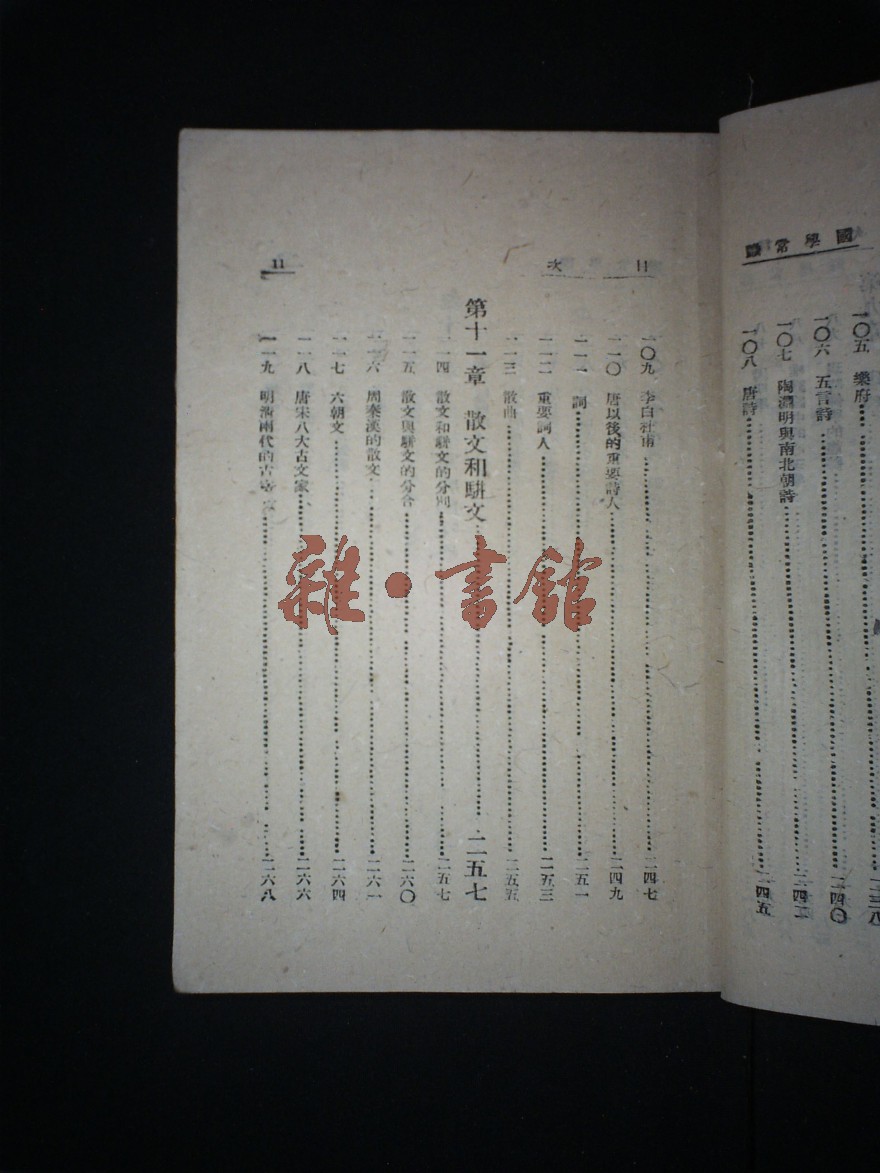 國學常識
一〇五 樂府 二三八
一〇六 五言詩 二四〇
一〇七 陶淵明與南北朝詩 二四二
一〇八 唐詩 二四五
目次
11
一〇九 李白杜甫 二四七
一一〇 唐以後的重要詩人 二四九
一一一 詞 二五一
一一二 重要詞人 二五三
一一三 散曲 二五五
第十一章 散文和駢文 二五七
一一四 散文和駢文的分別 二五七
一一五 散文與駢文的分合 二六〇
一一六 周秦漢的散文 二六一
一一七 六朝文 二六四
一一八 唐宋八大古文家 二六六
一一九 明清兩代的古文 二六八
雜·書館